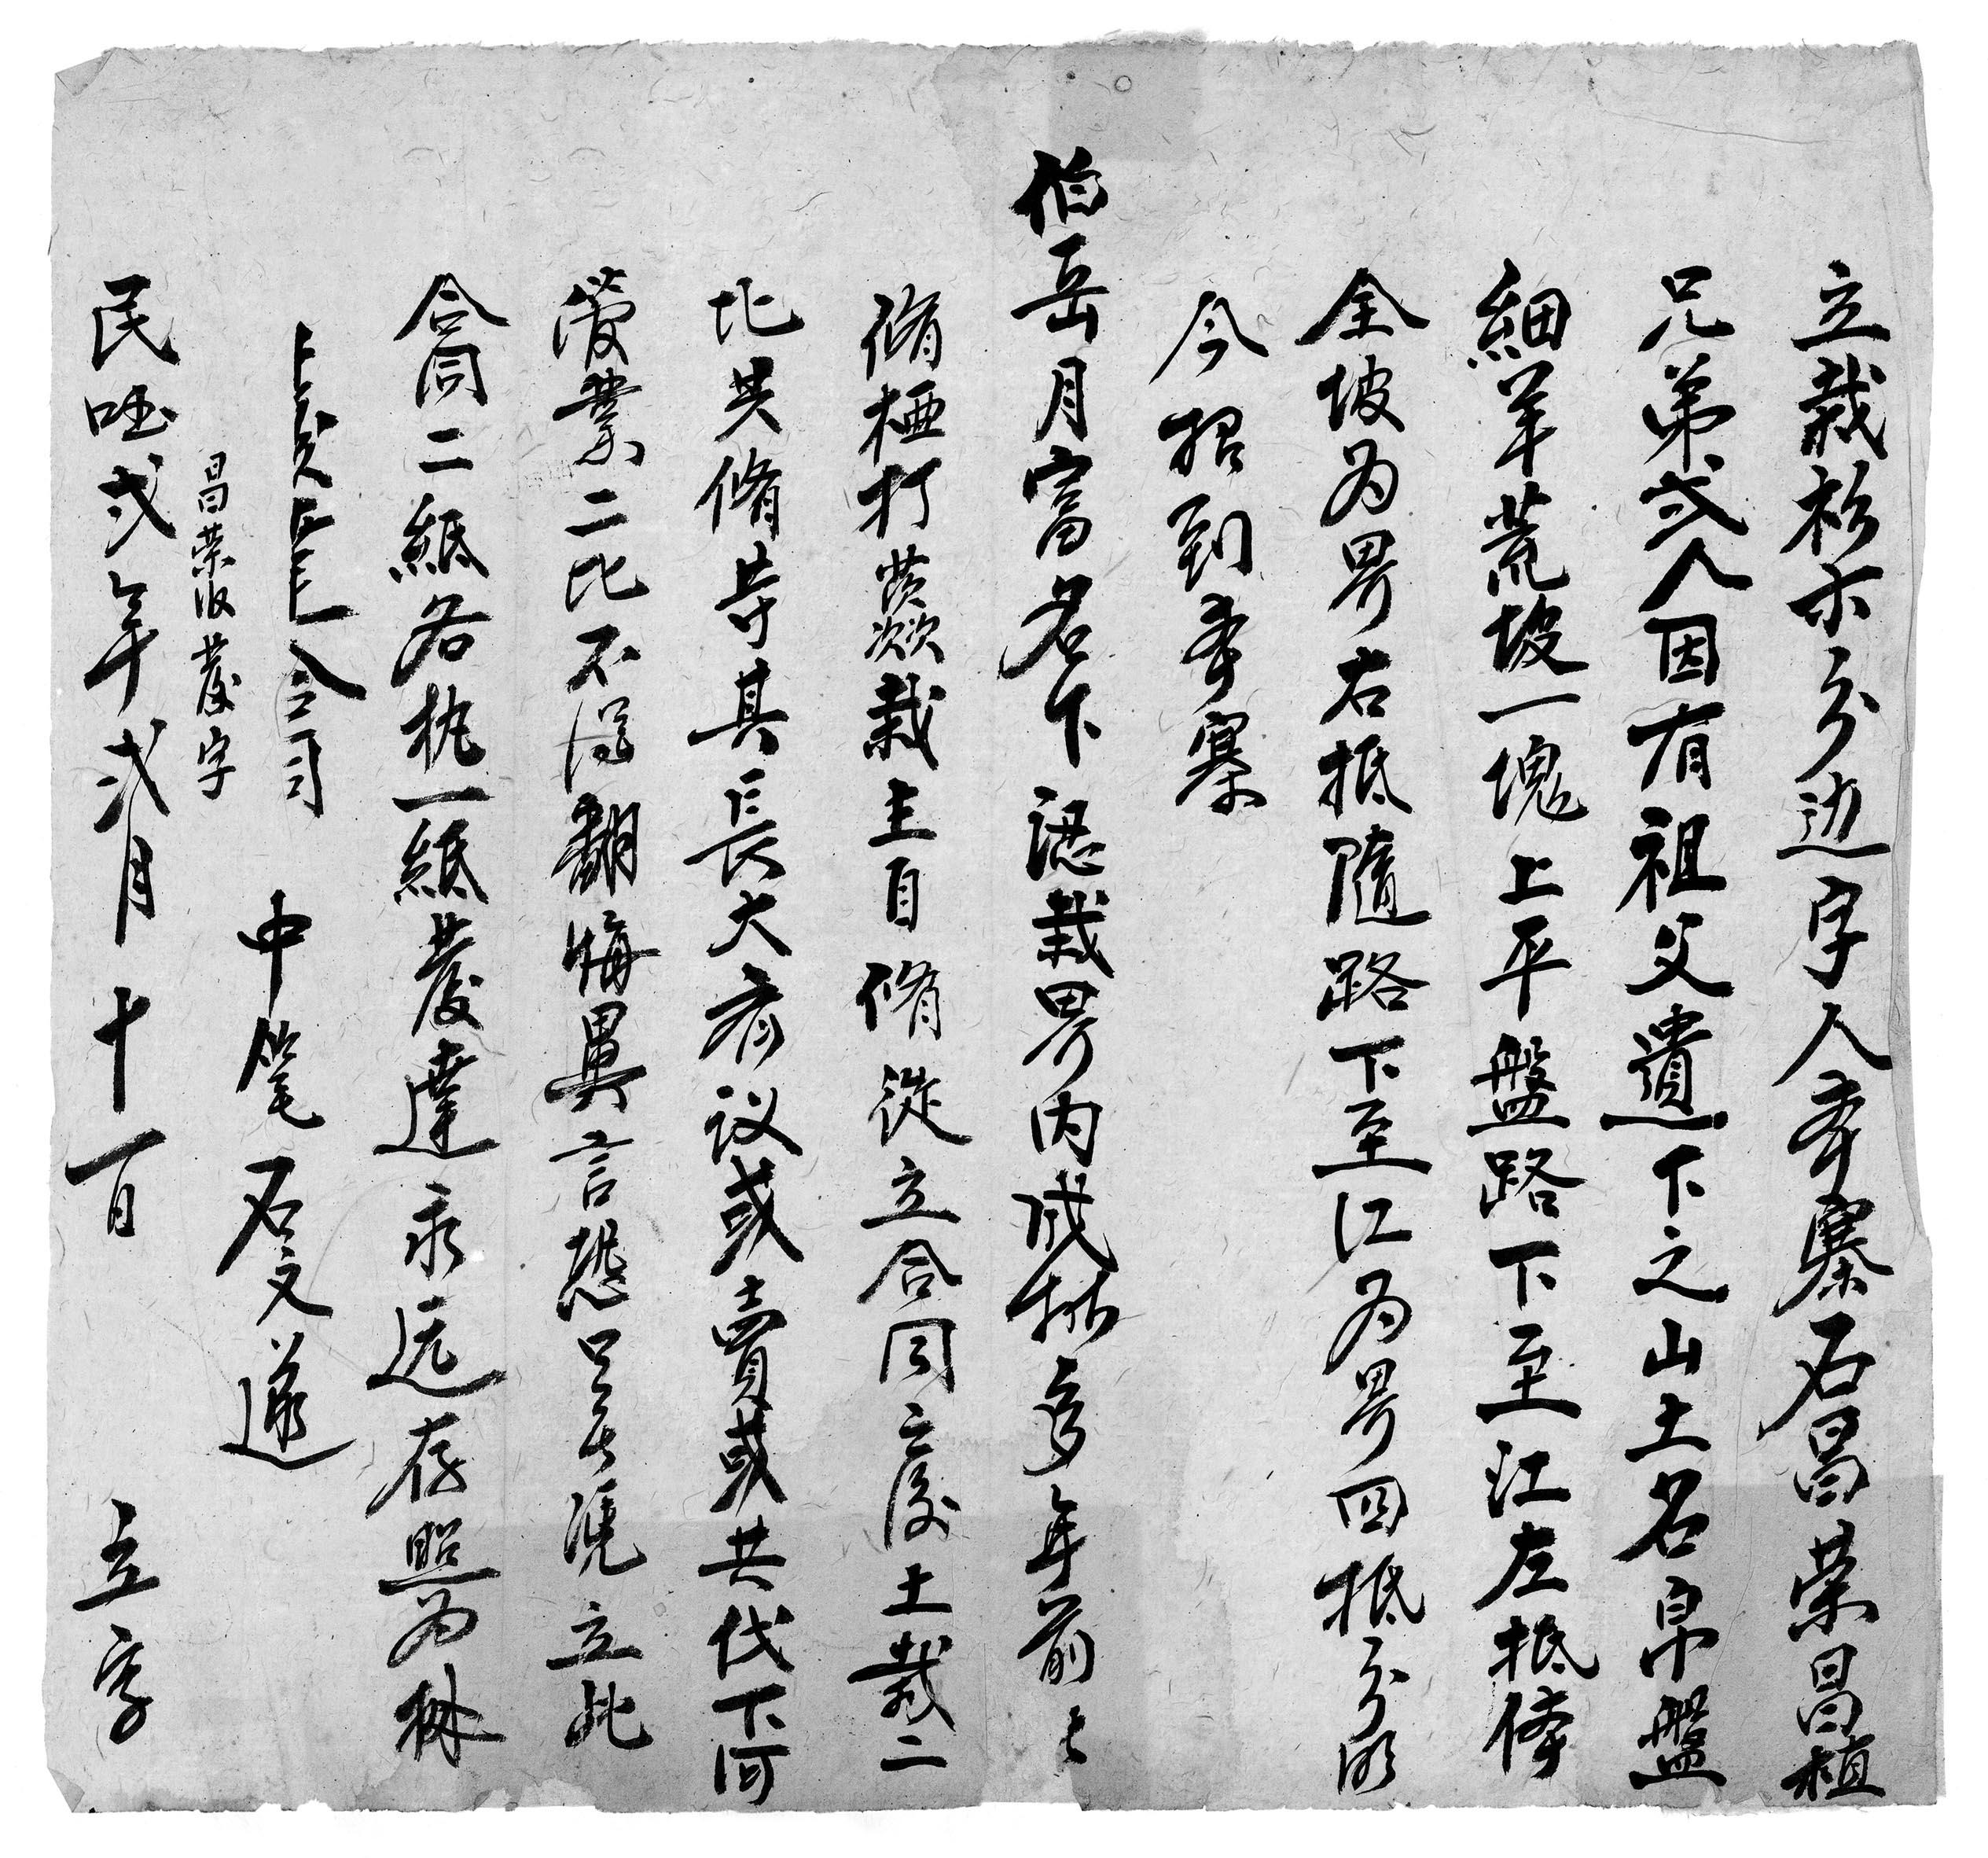 立栽杉木分边字人本寨石昌荣昌植
兄弟弍人因有祖父遺下之山土名帛盤
細羊荒坡一塊上平盤路下至江左抵
全坡为界右抵隨路下至江为界四抵分明
今招到本寨
伯岳月富名下認栽界内成林多年前
脩打栽主自脩從立合同之後土栽二
比共脩其長大商议或賣或共伐下河
發業二比不得翻悔異言恐口無凭立此
合同二紙各执一紙發達永远存照为
合同
昌荣收發字
中笔石文遂
民国弍年弍月十一日 立字